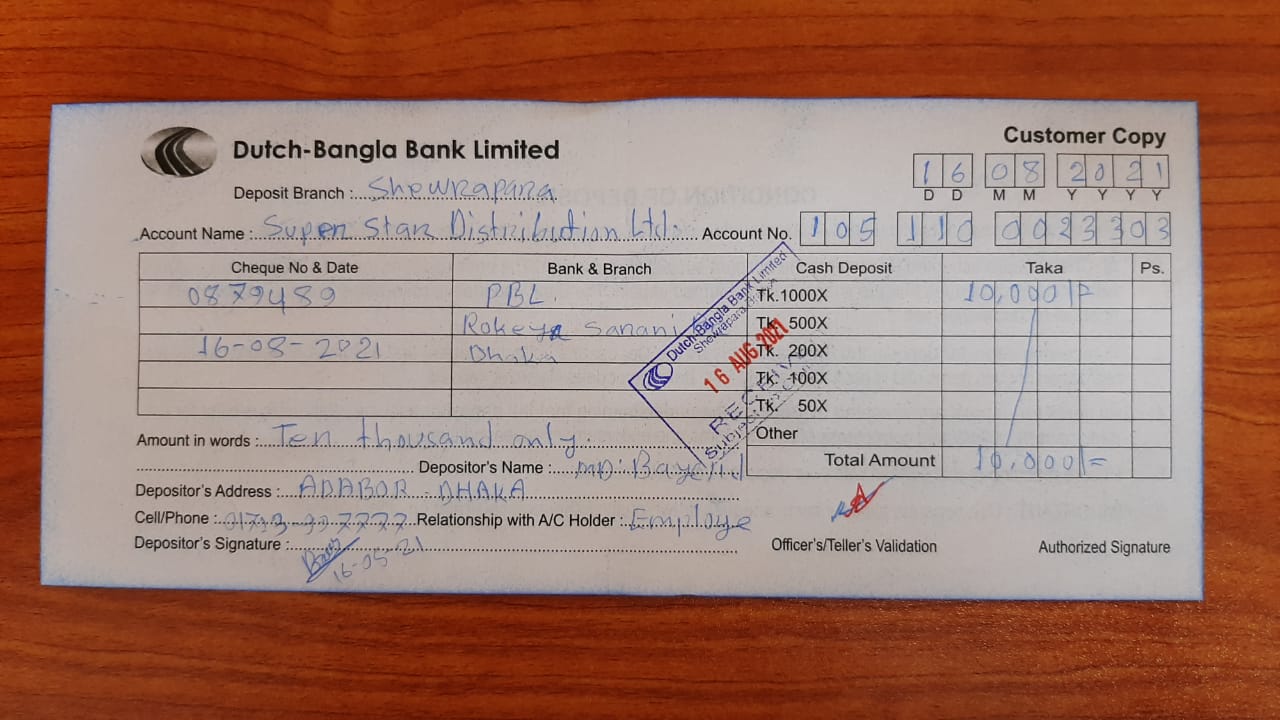 Customer Copy
Dutch-Bangla Bank Limited
16 08 2021
D D M M Y Y Y Y
Deposit Branch : Shewrapara
Account Name : Super Star Distribution Ltd. Account No. 105 110 0023303
Cheque No & Date Bank & Branch Cash Deposit Taka Ps.
0879489 PBL. Tk.1000X 10,000/=
Rokeya Sarani Tk. 500X
16-08-2021 Dhaka Tk. 200X
Tk. 100X
Tk. 50X
Other
Total Amount 10,000/=
Dutch-Bangla Bank Limited
Shewrapara
16 AUG 2021
Subject
Amount in words : Ten thousand only.
Depositor's Name : MD:
Depositor's Address : ADABOR - DHAKA
Cell/Phone : Relationship with A/C Holder : Employe
Depositor's Signature :
Officer's/Teller's Validation Authorized Signature